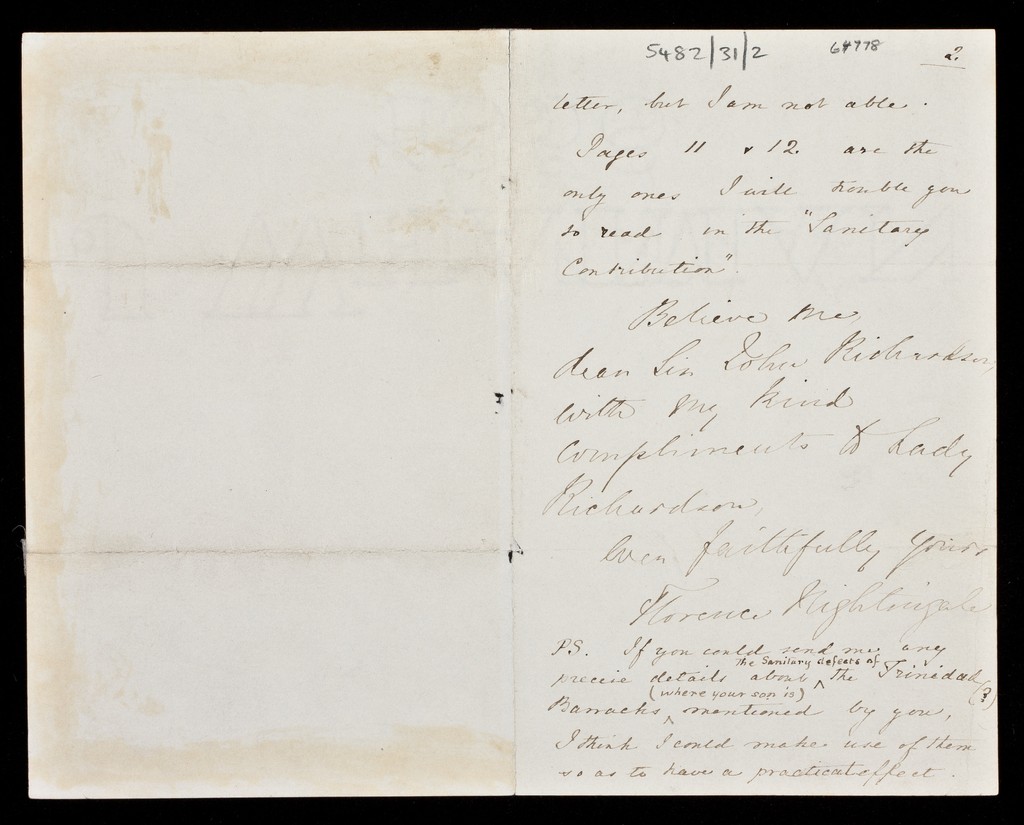 5482/31/2 64778 2.
letter, but I am not able.
Pages 11 & 12 are the
only ones I will trouble you
to read in the "Sanitary
Contribution".
Believe me
dear Sir John Richardson,
with my kind
compliments to Lady
Richardson,
ever faithfully yours
Florence Nightingale
P.S. If you could send me any
the Sanitary defects of
precise details about ^ the Trinidad (?)
(where your son is)
Barracks ^ mentioned by you,
I think I could make use of them
so as to have a practical effect.